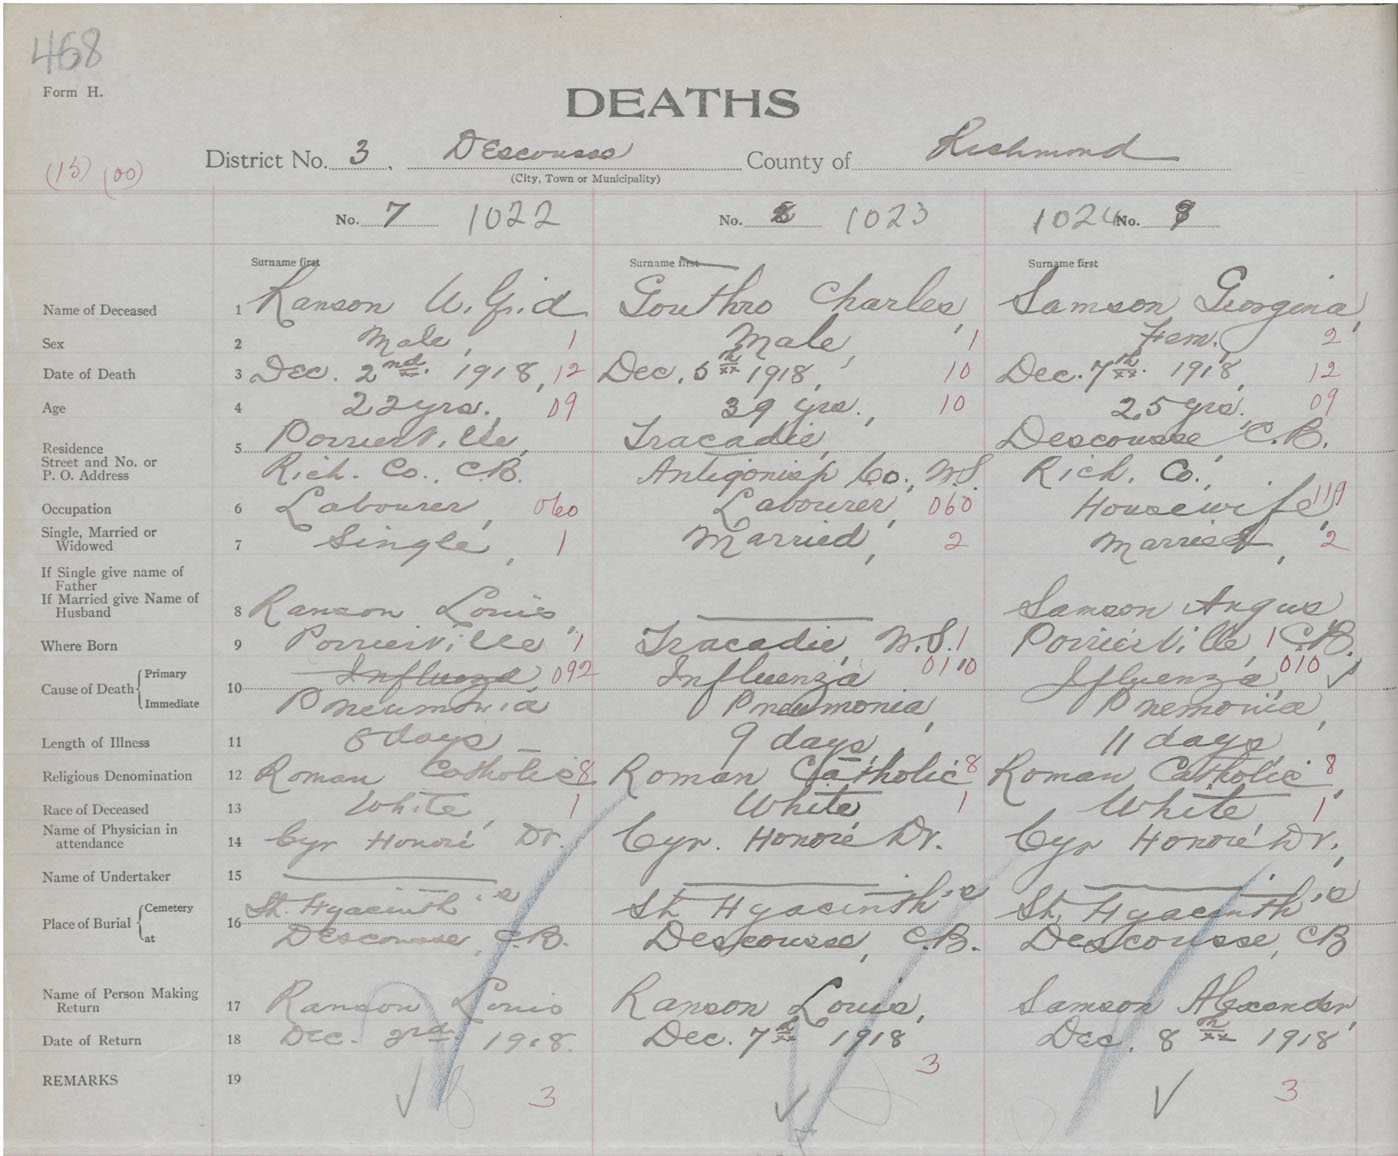 468
Form H.
DEATHS
District No. 3, DEscousse County of Richmond
(City, Town or Municipality)
(15) (00)
No. 7 1022 No. 8 1023 1024 No. 9
Surname first Surname first Surname first
Name of Deceased 1 Ranson W. Gouthro Charles, Samson Georgina,
Sex 2 Male, 1 Male, 1 Fem. 2
Date of Death 3 Dec. 2nd. 1918, 12 Dec. 5th 1918, 10 Dec. 7th 1918, 12
Age 4 22 yrs., 09 39 yrs., 10 25 yrs. 09
Residence 5 PoirierVille, Tracadie, Descousse C.B.
Street and No. or
P. O. Address Rich. Co., C.B. Antigonish Co., N.S. Rich. Co.,
Occupation 6 Labourer, 060 Labourer, 060 Housewife, 119
Single, Married or
Widowed 7 Single, 1 Married, 2 Married, 2
If Single give name of
Father
If Married give Name of
Husband 8 Ranson Louis, Samson Angus
Where Born 9 PoirierVille, 1 Tracadie, N.S. 1 PoirierVille, 1 C.B.
Cause of Death Primary 10 Influenza, 092 Influenza 010 Ifluenza, 010
Immediate Pneumonia Pneumonia, Pnemonia,
Length of Illness 11 8 days 9 days, 11 days,
Religious Denomination 12 Roman Catholic 8 Roman Catholic 8 Roman Catholic 8
Race of Deceased 13 White, 1 White, 1 White, 1
Name of Physician in
attendance 14 Cyr Honoré Dr. Cyr. Honoré Dr. Cyr Honoré Dr.,
Name of Undertaker 15
Place of Burial Cemetery 16 St. Hyacinth's St. Hyacinth's St. Hyacinth's
at DEscousse, C.B. Descousse, C.B. Descousse, CB
Name of Person Making
Return 17 Ranson Louis Ranson Louis, Samson Alexander,
Date of Return 18 Dec. 3rd. 1918. Dec. 7th 1918 Dec. 8th 1918
REMARKS 19 3 3 3